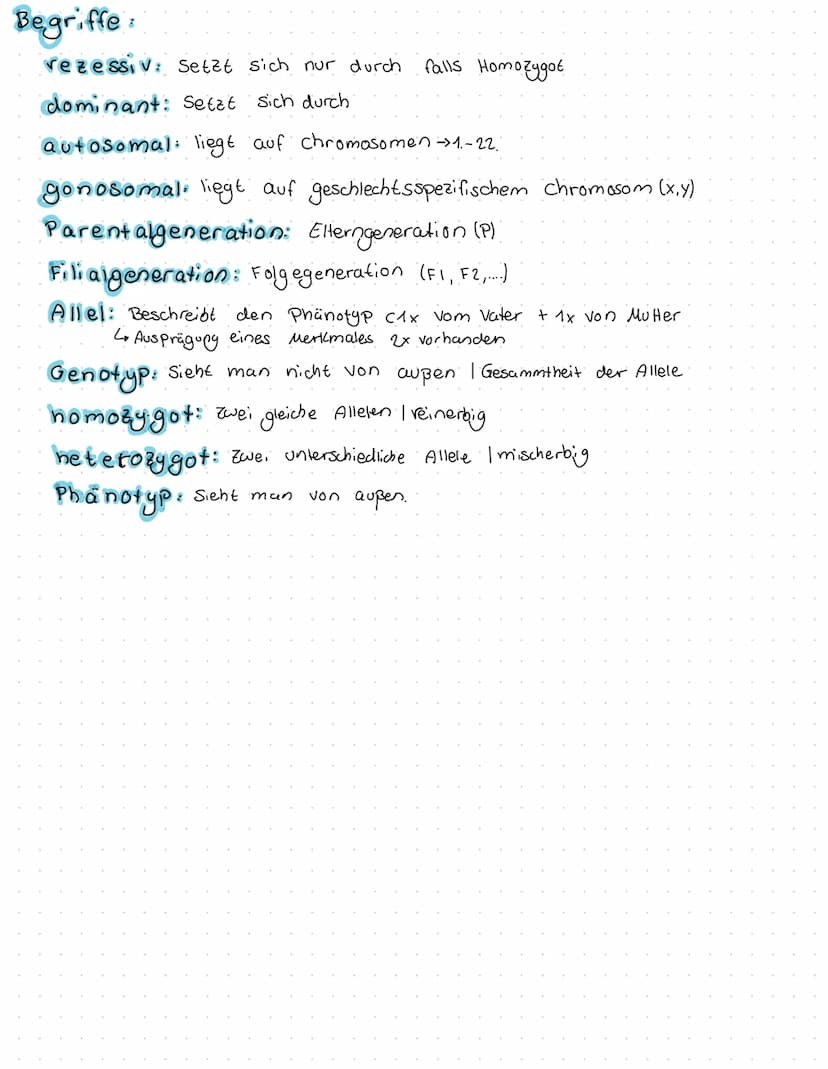 Begriffe:
rezessiv: Setzt sich nur durch falls Homozygot
dominant: Setzt sich durch
autosomal: liegt auf Chromosomen →1.-22.
gonosomal: liegt auf geschlechtsspezifischem Chromosom (x,y)
Parentalgeneration: Elterngeneration (P)
Filialgeneration: Folgegeneration (F1, F2,....)
Allel: Beschreibt den Phänotyp c1x vom Vater + 1x von Mutter
↳ Ausprägung eines Merkmales 2x vorhanden
Genotyp: Sieht man nicht von außen | Gesammtheit der Allele
homozygot: zwei gleiche Allelen | reinerbig
heterozygot: zwei unterschiedliche Allele | mischerbig
Phänotyp: Sieht man von außen.